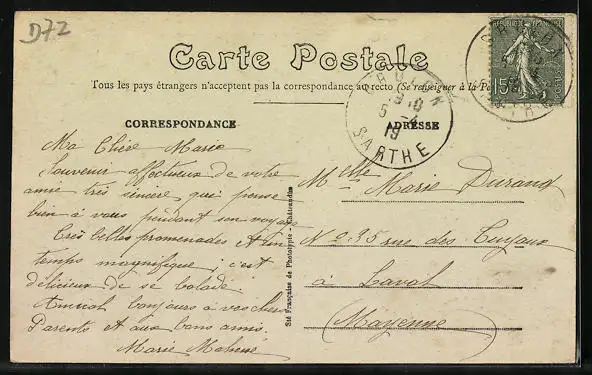 D72
Carte Postale
REPUBLIQUE FRANÇAISE
15
POSTES
Tous les pays étrangers n'acceptent pas la correspondance au recto (Se renseigner à la
CORRESPONDANCE
ADRESSE
5 -4
19
SARTHE
Ma Chère Marie
Souvenir affectueux de votre
amie très sincère qui pense
bien à vous pendant son voyage
Très belles promenades
temps magnifique; c'est
délicieux de se balade.
Amical bonjours à vos chers
Parents et aux bons amis.
Marie
Melle Marie Durand
No 35 rue des Tuyaux
à Laval
(Mayenne)
Sté Française de Phototypie - Châteaudun